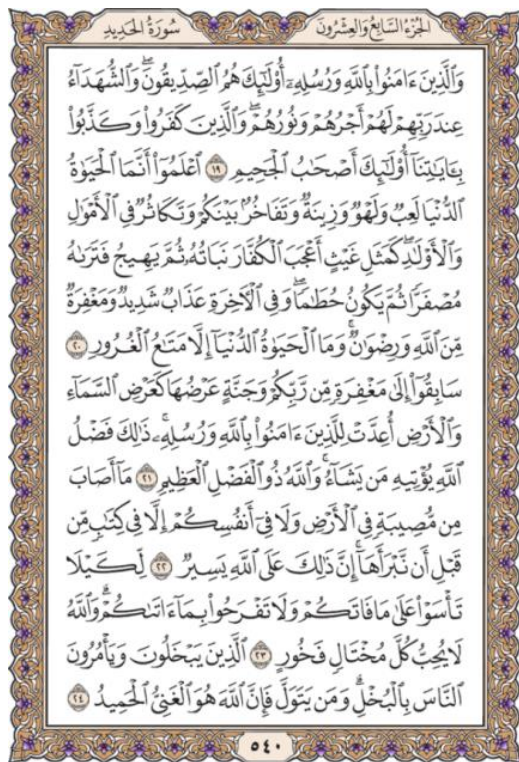 الجُزْءُ السَّابِعُ وَالعِشْرُونَ سُورَةُ الحَدِيدِ
وَالَّذِينَ ءَامَنُواْ بِاللَّهِ وَرُسُلِهِۦٓ أُوْلَٰٓئِكَ هُمُ الصِّدِّيقُونَۖ وَالشُّهَدَآءُ
عِندَ رَبِّهِمْ لَهُمْ أَجْرُهُمْ وَنُورُهُمْۖ وَالَّذِينَ كَفَرُواْ وَكَذَّبُواْ
بِـَٔايَٰتِنَآ أُوْلَٰٓئِكَ أَصْحَٰبُ الْجَحِيمِ ١٩ اعْلَمُوٓاْ أَنَّمَا الْحَيَوٰةُ
الدُّنْيَا لَعِبٌ وَلَهْوٌ وَزِينَةٌ وَتَفَاخُرٌۢ بَيْنَكُمْ وَتَكَاثُرٌ فِي الْأَمْوَٰلِ
وَالْأَوْلَٰدِۖ كَمَثَلِ غَيْثٍ أَعْجَبَ الْكُفَّارَ نَبَاتُهُۥ ثُمَّ يَهِيجُ فَتَرَىٰهُ
مُصْفَرًّا ثُمَّ يَكُونُ حُطَٰمًاۖ وَفِي الْأٓخِرَةِ عَذَابٌ شَدِيدٌ وَمَغْفِرَةٌ
مِّنَ اللَّهِ وَرِضْوَٰنٌۚ وَمَا الْحَيَوٰةُ الدُّنْيَآ إِلَّا مَتَٰعُ الْغُرُورِ ٢٠
سَابِقُوٓاْ إِلَىٰ مَغْفِرَةٍ مِّن رَّبِّكُمْ وَجَنَّةٍ عَرْضُهَا كَعَرْضِ السَّمَآءِ
وَالْأَرْضِ أُعِدَّتْ لِلَّذِينَ ءَامَنُواْ بِاللَّهِ وَرُسُلِهِۦۚ ذَٰلِكَ فَضْلُ
اللَّهِ يُؤْتِيهِ مَن يَشَآءُۚ وَاللَّهُ ذُو الْفَضْلِ الْعَظِيمِ ٢١ مَآ أَصَابَ
مِن مُّصِيبَةٍ فِي الْأَرْضِ وَلَا فِيٓ أَنفُسِكُمْ إِلَّا فِي كِتَٰبٍ مِّن
قَبْلِ أَن نَّبْرَأَهَآۚ إِنَّ ذَٰلِكَ عَلَى اللَّهِ يَسِيرٌ ٢٢ لِّكَيْلَا
تَأْسَوْاْ عَلَىٰ مَا فَاتَكُمْ وَلَا تَفْرَحُواْ بِمَآ ءَاتَىٰكُمْۗ وَاللَّهُ
لَا يُحِبُّ كُلَّ مُخْتَالٍ فَخُورٍ ٢٣ الَّذِينَ يَبْخَلُونَ وَيَأْمُرُونَ
النَّاسَ بِالْبُخْلِۗ وَمَن يَتَوَلَّ فَإِنَّ اللَّهَ هُوَ الْغَنِيُّ الْحَمِيدُ ٢٤
٥٤٠